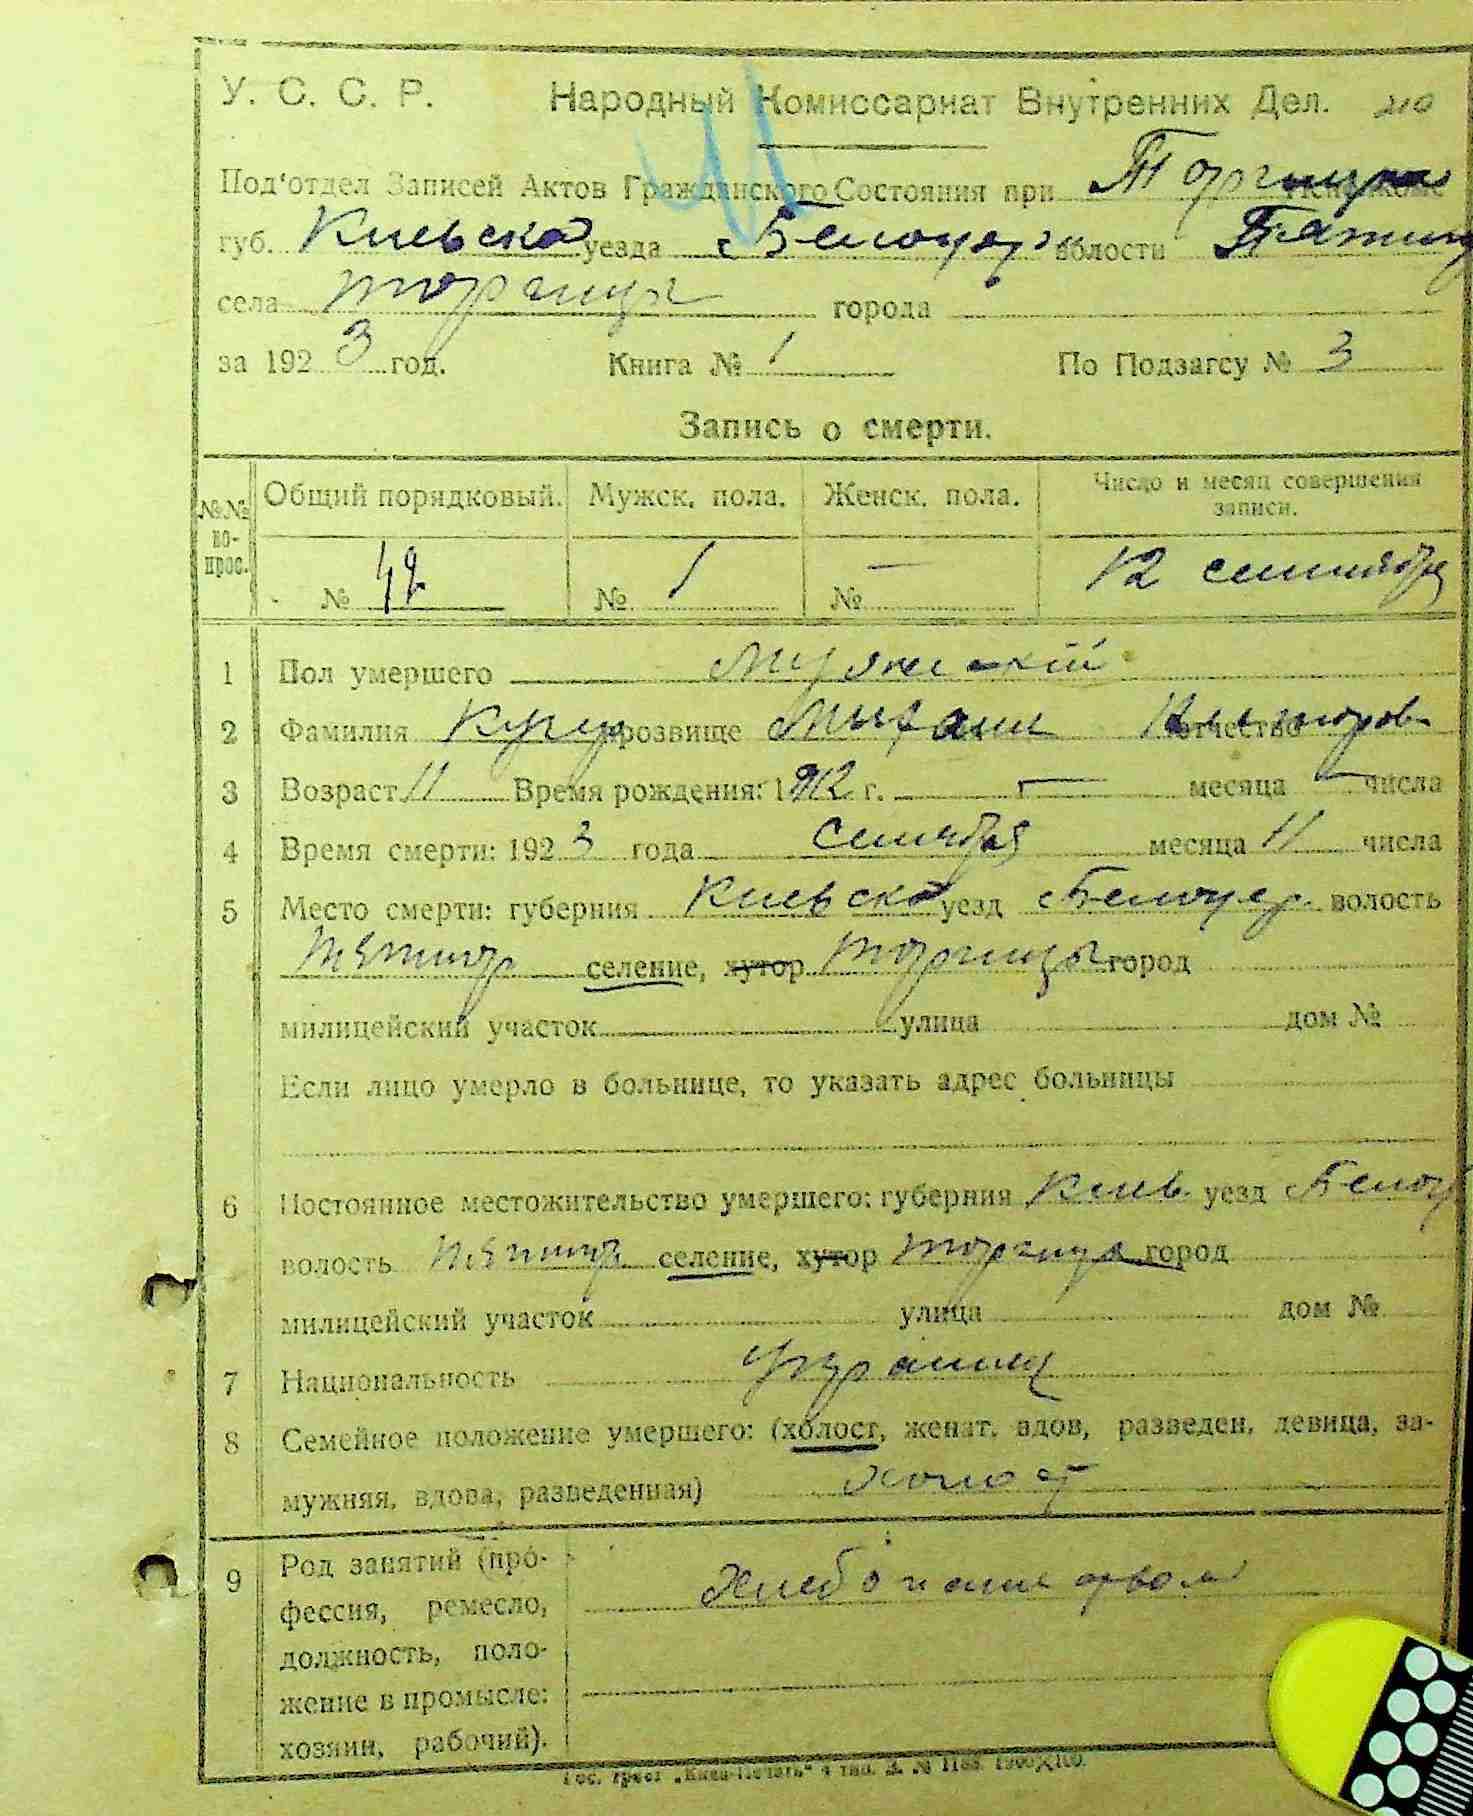 У. С. С. Р. Народный Комиссариат Внутренних Дел. 210
Под'отдел Записей Актов Гражданского Состояния при Торчицком
губ. Киевской уезда Белоцер волости Пятигор
села Торчица города
за 1923 год. Книга № 1 По Подзагсу № 3
Запись о смерти.
№№ вопрос. Общий порядковый. Мужск. пола. Женск. пола. Число и месяц совершения записи.
№ № 1 № — 12 сентября
1 Пол умершего Мужской
2 Фамилия прозвище отчество
3 Возраст 11 Время рождения: 1912 г. — месяца — числа
4 Время смерти: 1923 года сентября месяца 11 числа
5 Место смерти: губерния Киевская уезд Белоцер. волость
Пятигор селение, хутор Торчица город
милицейский участок улица дом №
Если лицо умерло в больнице, то указать адрес больницы
6 Постоянное местожительство умершего: губерния Киев. уезд Белоц
волость Пятигор селение, хутор Торчица город
милицейский участок улица дом №
7 Национальность Украинец
8 Семейное положение умершего: (холост, женат, вдов, разведен, девица, за-
мужняя, вдова, разведенная) холост
9 Род занятий (про-
фессия, ремесло,
должность, поло-
жение в промысле:
хозяин, рабочий).